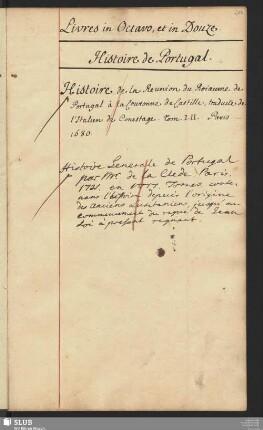 Livres in Octavo, et in Douze.
Histoire de Portugal.
Histoire de la Reunion du Roiaume de
Portugal à la Couronne de Castille, traduite de
l'Italien de Conestage. tom. I-II. Paris
1680.
Histoire Generalle de Portugal
par Mr. de la Clede Paris.
en Tomes
l'histoire depuis l'origine
des Anciens Lusitaniens, jusqu'au
commencement du regne de Jean
à present regnant.
SLUB